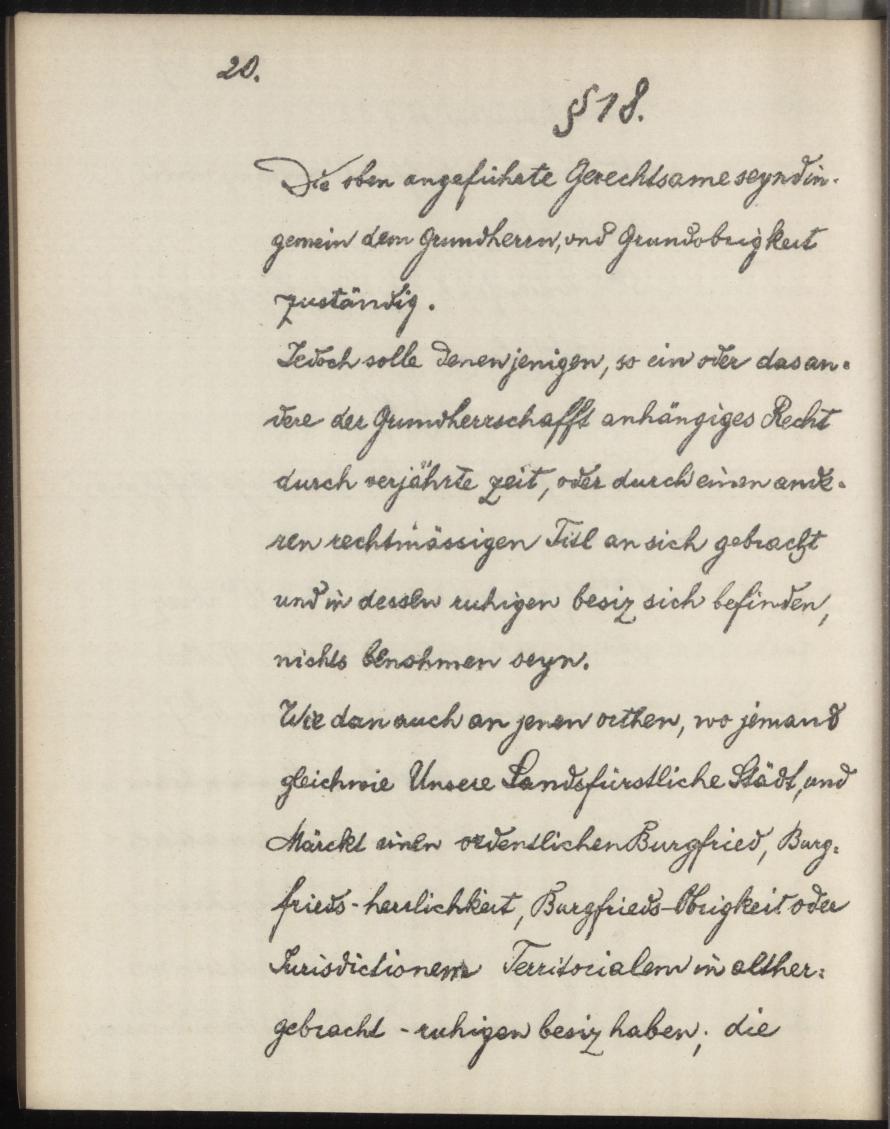 20.
§ 18.
Die oben angeführte Gerechtsame seynd in-
gemein dem Grundherrn, und Grundobrigkeit
zuständig.
Jedoch solle denenjenigen, so ein oder das an-
dere der Grundherrschafft anhängiges Recht
durch verjährte zeit, oder durch einen ande-
ren rechtmässigen Titl an sich gebracht
und in dessen ruhigen besiz sich befinden,
nichts benohmen seyn.
Wie dan auch an jenen orthen, wo jemand
gleichwie Unsere Landsfürstliche Städt, und
Märckt einen ordentlichen Burgfried, Burg-
frieds-herrlichkeit, Burgfrieds-Obrigkeit oder
Jurisdictionem Territorialem in alther-
gebracht - ruhigen besiz haben; die